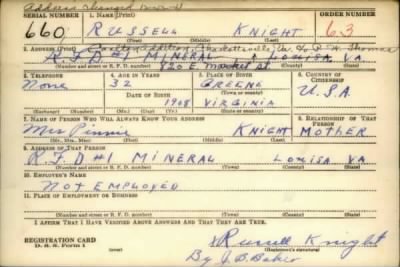 Address Changed
SERIAL NUMBER 1. NAME (Print) ORDER NUMBER
660 RUSSELL KNIGHT 63
(First) (Middle) (Last)
2. ADDRESS (Print) Carlton Addition, Charlottesville, Va.
R.F.D #1 MINERAL LOUISA VA
820 E Market St
(Number and street or R. F. D. number) (Town) (County) (State)
3. TELEPHONE 4. AGE IN YEARS 5. PLACE OF BIRTH 6. COUNTRY OF CITIZENSHIP
None 32 GREENE U.S.A
DATE OF BIRTH (Town or county)
1908 VIRGINIA
(Exchange) (Number) (Mo.) (Day) (Yr.) (State or country)
7. NAME OF PERSON WHO WILL ALWAYS KNOW YOUR ADDRESS 8. RELATIONSHIP OF THAT PERSON
Mrs Pinnie KNIGHT MOTHER
(Mr., Mrs., Miss) (First) (Middle) (Last)
9. ADDRESS OF THAT PERSON
R.F.D #1 MINERAL LOUISA VA
(Number and street or R. F. D. number) (Town) (County) (State)
10. EMPLOYER'S NAME
NOT EMPLOYED
11. PLACE OF EMPLOYMENT OR BUSINESS
(Number and street or R. F. D. number) (Town) (County) (State)
I AFFIRM THAT I HAVE VERIFIED ABOVE ANSWERS AND THAT THEY ARE TRUE.
REGISTRATION CARD Russell Knight
D. S. S. Form 1 (Registrant's signature)
By J. B. Baker